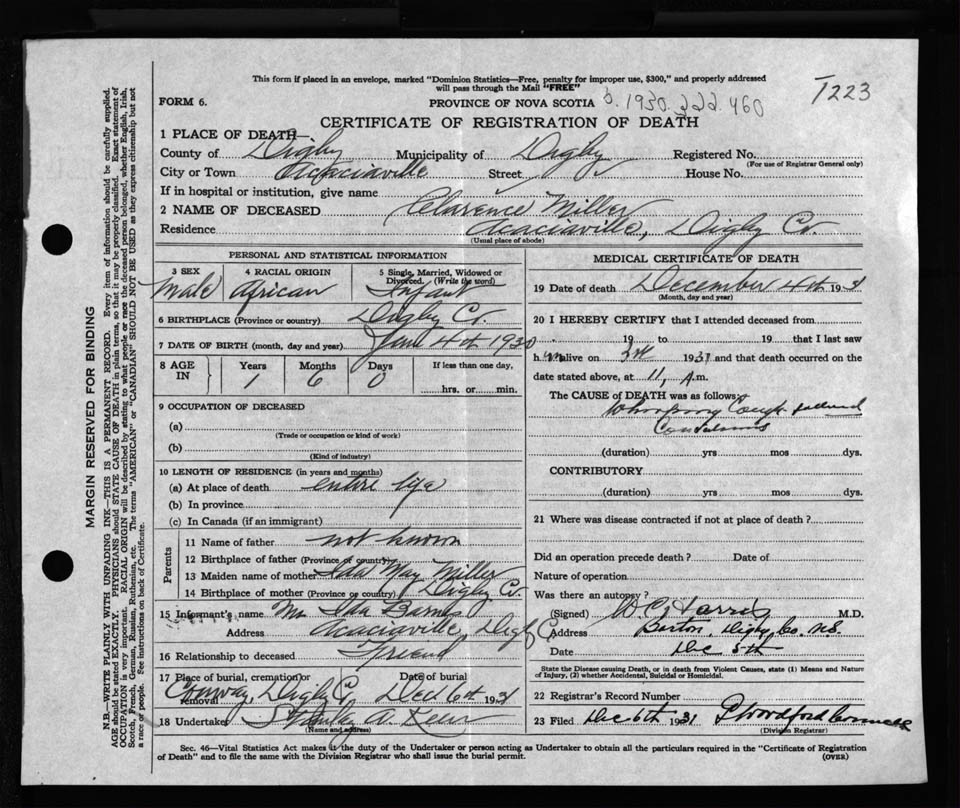 This form if placed in an envelope, marked "Dominion Statistics—Free, penalty for improper use, $300," and properly addressed
will pass through the Mail "FREE"
T223
FORM 6.
PROVINCE OF NOVA SCOTIA
b. 1930. 222. 460
CERTIFICATE OF REGISTRATION OF DEATH
1 PLACE OF DEATH—
County of Digby Municipality of Digby Registered No.
(For use of Registrar General only)
City or Town Acaciaville Street House No.
If in hospital or institution, give name
2 NAME OF DECEASED Clarence Miller
Residence Acaciaville, Digby Co.
(Usual place of abode)
PERSONAL AND STATISTICAL INFORMATION
3 SEX
Male
4 RACIAL ORIGIN
African
5 Single, Married, Widowed or
Divorced. (Write the word)
Infant
6 BIRTHPLACE (Province or country) Digby Co.
7 DATE OF BIRTH (month, day and year) 4th 1930
8 AGE IN
Years
1
Months
6
Days
0
If less than one day,
hrs. or min.
9 OCCUPATION OF DECEASED
(a)
(Trade or occupation or kind of work)
(b)
(Kind of industry)
10 LENGTH OF RESIDENCE (in years and months)
(a) At place of death entire life
(b) In province
(c) In Canada (if an immigrant)
Parents
11 Name of father not known
12 Birthplace of father (Province or country)
13 Maiden name of mother Ida May Miller
14 Birthplace of mother (Province or country) Digby Co.
15 Informant's name Ida Barnes
Address Acaciaville, Digby Co
16 Relationship to deceased Friend
17 Place of burial, cremation or removal Date of burial
Conway, Digby Co Dec 6th 1931
18 Undertaker Stanley A.
(Name and address)
MEDICAL CERTIFICATE OF DEATH
19 Date of death December 4th 1931
(Month, day and year)
20 I HEREBY CERTIFY that I attended deceased from
19 to 19 that I last saw
h im alive on 3rd 1931 and that death occurred on
date stated above, at 11, A.m.
The CAUSE OF DEATH was as follows:
Whooping Cough followed
Convulsions
(duration) yrs mos dys.
CONTRIBUTORY
(duration) yrs mos dys.
21 Where was disease contracted if not at place of death?
Did an operation precede death? Date of
Nature of operation
Was there an autopsy?
(Signed) W C Harris M.D.
Address Barton, Digby Co. N.S.
Date Dec 5th
State the Disease causing Death, or in death from Violent Causes, state (1) Means and Nature
of Injury, (2) whether Accidental, Suicidal or Homicidal.
22 Registrar's Record Number
23 Filed Dec 6th 1931
(Division Registrar)
Sec. 46—Vital Statistics Act makes it the duty of the Undertaker or person acting as Undertaker to obtain all the particulars required in the "Certificate of Registration
of Death" and to file the same with the Division Registrar who shall issue the burial permit.
(OVER)
MARGIN RESERVED FOR BINDING
N.B.—WRITE PLAINLY WITH UNFADING INK—THIS IS A PERMANENT RECORD. Every item of information should be carefully supplied.
AGE should be stated EXACTLY. PHYSICIANS should STATE CAUSE OF DEATH in plain terms, so that it may be properly classified. Exact statement of
OCCUPATION is very important. RACIAL ORIGIN will be described by stating to what people or race the deceased person belonged, whether English, Irish,
Scotch, French, German, Russian, Ruthenian, etc. The terms "AMERICAN" or "CANADIAN" SHOULD NOT BE USED as they express citizenship but not
a race or people. See instructions on back of Certificate.